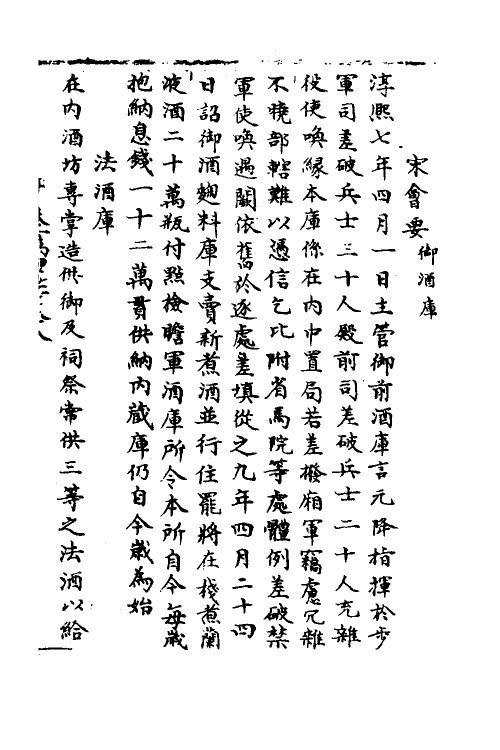 宋會要 御酒庫
淳熙七年四月一日主管御前酒庫言元降指揮於步
軍司差破兵士三十人殿前司差破兵士二十人充雜
役使喚緣本庫係在内中置局若差撥廂軍竊慮冗雜
不曉部轄難以憑信乞比附省馬院等處體例差破禁
軍使喚遇闕依舊於逐處差填從之九年四月二十四
日詔御酒麴料庫支賣新煮酒並行住罷將在棧煮蘭
液酒二十萬瓶付點檢贍軍酒庫所令本所自今每歲
抱納息錢一十二萬貫供納内藏庫仍自今歲為始
法酒庫
在内酒坊專掌造供御及祠祭常供三等之法酒以給